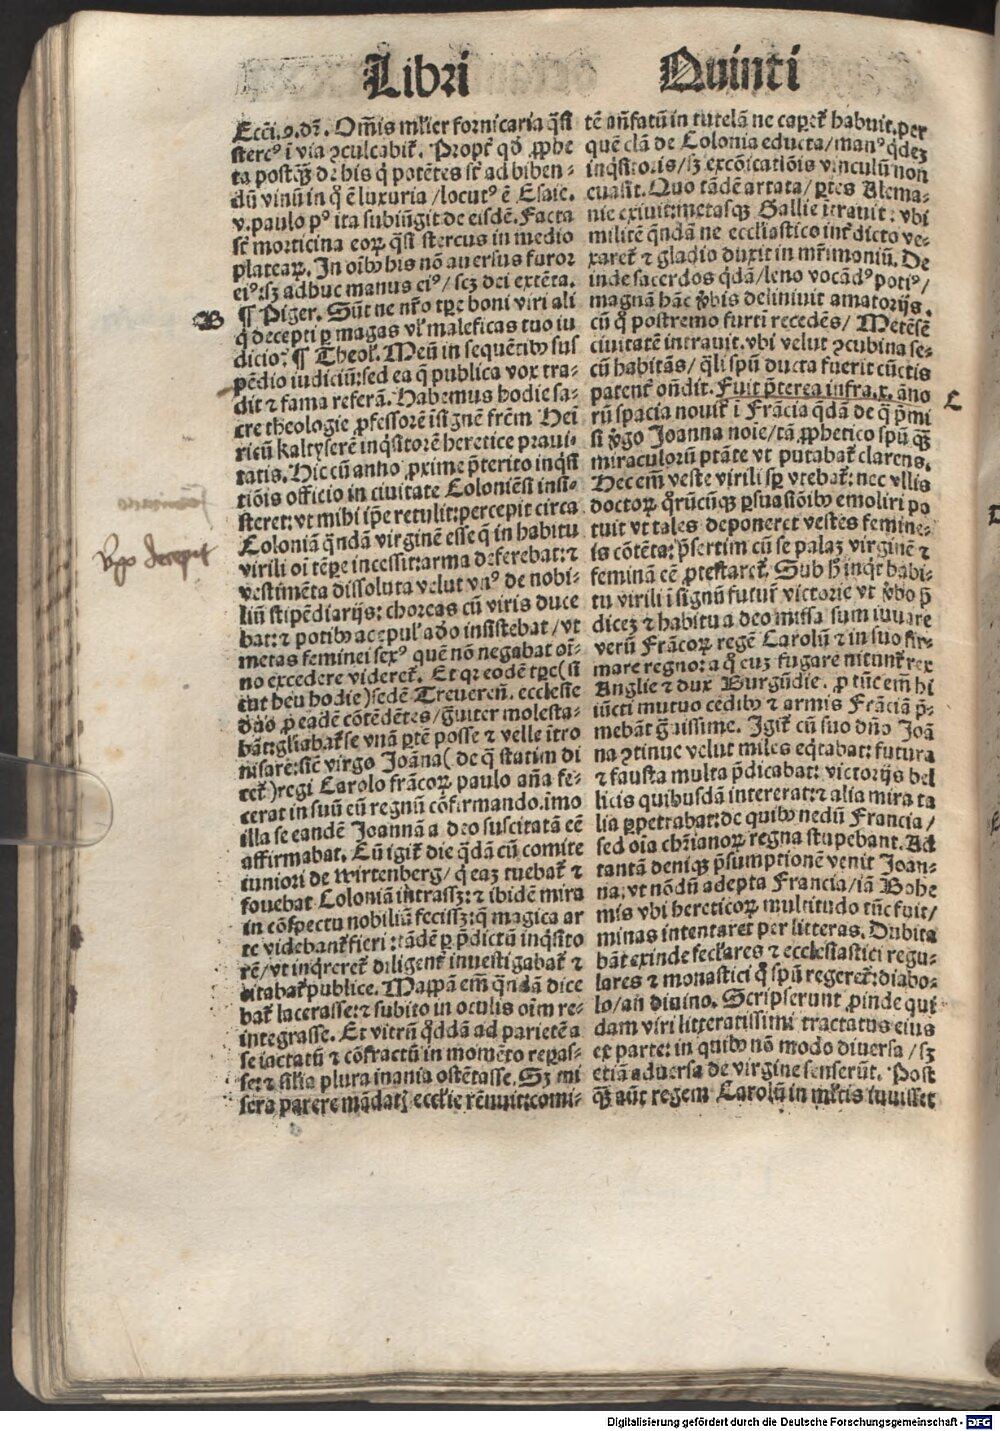 Libri Quinti
Ecci.9.dr̄. Om̄is ml̓ier fornicaria q̄si
sterc⁹ ī via ꝯculcabit̓. Propt̓ qd̓ ꝓphe
ta postq̄ꝫ de his q̓ potētes sūt ad biben-
dū vinū in q̊ ē luxuria / locut⁹ ē Esaie.
v. paulo p⁹ ita subiūgit de eisdē. Facta
st̄ morticina eoꝝ q̄si stercus in medio
plateaꝝ. In oīb⁹ his nō auersus furor
ei⁹: sꝫ adhuc manus ei⁹ / scꝫ dei extēta.
B
¶ Piger. Sūt ne nr̄o tꝑe boni viri ali
q̓ decepti ꝑ magas vl̓ maleficas tuo iu
dicio? ¶ Theol̓. Meū in sequētib⁹ sus
pēdio iudiciū: sed ea q̄ publica vox tra-
dit ⁊ fama referā. Habemus hodie sa-
cre theologie ꝓfessorē īsignē frēm Hen̄
ricū kaltyserē inq̓sitorē heretice praui-
tatis. Hic cū anno ꝓxime p̄terito inq̓si
tiōis officio in ciuitate Coloniēsi insi-
steret: vt mihi ip̄e retulit: percepit circa
Coloniā q̄ndā virginē esse q̄ in habitu
virili oī tēꝑe incessit: arma deferebat: ⁊
vestimēta dissoluta velut vn⁹ de nobi-
liū stipēdiarijs: choreas cū viris duce
bat: ⁊ potib⁹ ac epul̓ adeo insistebat / vt
metas feminei sex⁹ quē nō negabat oī-
no excedere videret̓. Et qꝛ eodē tꝑe (si
cut heu hodie) sedē Treueren̄. ecclesie
duo ꝓ eadē cōtēdētes / g̓uiter molesta-
bāt: gl̓iabat̓ se vnā ꝑtē posse ⁊ velle ītro
nisare: sic̄ virgo Joāna (de q̄ statim di
cet̓) regi Carolo frācoꝝ paulo an̄a fe-
cerat in suū eū regnū cōfirmando. imo
illa se eandē Joannā a deo suscitatā eē
affirmabat. Cū igit̓ die q̄dā cū comite
iuniori de wirtenberg / q̓ eaꝫ tuebat̓ ⁊
fouebat Coloniā intrassꝫ: ⁊ ibidē mira
in cōspectu nobiliū fecissꝫ: q̄ magica ar
te videbant̓ fieri: tādē ꝑ p̄dictū inq̓sito
rē / vt inq̓reret̓ diligent̓ inuestigabat̓ ⁊
citabat̓ publice. Mappā em̄ q̄ndā dice
bat̓ lacerasse: ⁊ subito in oculis oīm re-
integrasse. Et vitrū q̊ddā ad parietē a
se iactatū ⁊ cōfractū in momēto reꝑas-
se: ⁊ silia plura inania ostētasse. Sꝫ mi
sera parere mādatꝭ ecclie rēnuit: comi-
tē an̄fatū in tutelā ne caꝑet̓ habuit. per
quē clā de Colonia educta / man⁹ q̓deꝫ
inq̓sitoris / sꝫ excōicatiōis vinculū non
euasit. Quo tādē artata / ꝑtes Alema-
nie exiuit: metasqꝫ Gallie ītrauit: vbi
militē q̄ndā ne eccl̓iastico int̓dicto ve-
xaret̓ ⁊ gladio duxit in mr̄imoniū. De
inde sacerdos q̓dā / leno vocād⁹ poti⁹ /
magnā hāc v̓bis deliniuit amatorijs.
cū q̊ postremo furtī recedēs / Metēsē
ciuitatē intrauit. vbi velut ꝯcubina se-
cū habitās / q̓li spū ducta fuerit cūctis
patent̓ on̄dit. Fuit p̄terea infra. x. āno
C
rū spacia nouit̓ ī Frācia q̄dā de q̄ p̄mi
si v̓go Joanna noīe / tā ꝓphetico spū qꝫ
miraculorū ptāte vt putabat̓ clarens.
Hec em̄ veste virili sꝑ vtebat̓: nec vllis
doctoꝝ q̊rūcūqꝫ ꝑsuasiōib⁹ emoliri po
tuit vt tales deponeret vestes femine-
is cōtēta: p̄sertim cū se palaꝫ virginē ⁊
feminā eē ꝓtestaret̓. Sub h̄ inq̓t habi-
tu virili ī signū futur̓ victorie vt v̓bo p̄
diceꝫ ⁊ habitu a deo missa sum iuuare
verū Frācoꝝ regē Carolū ⁊ in suo fir-
mare regno: a q̊ euꝫ fugare nitunt̓ rex
Anglie ⁊ dux Burgūdie. ꝓ tūc em̄ hi
iūcti mutuo cedib⁹ ⁊ armis Frāciā p̄-
mebāt g̓uissime. Igit̓ cū suo dn̄o Joā
na ꝯtinue velut miles eq̓tabat: futura
⁊ fausta multa p̄dicabat: victorijs bel
licis quibusdā intererat: ⁊ alia mira ta
lia ꝑpetrabat: de quib⁹ nedū Francia /
sed oīa chr̄ianoꝝ regna stupebant. Ad
tantā deniqꝫ p̄sumptionē venit Joan-
na: vt nōdū adepta Francia / iā Bohe
mis vbi hereticoꝝ multitudo tūc fuit /
minas intentaret per litteras. Dubita
bāt exinde secl̓ares ⁊ ecclesiastici regu-
lares ⁊ monastici q̊ spū regeret̓: diabo-
lo / an̄ diuino. Scripserunt ꝓinde qui
dam viri litteratissimi tractatus eius
ex parte: in quib⁹ nō modo diuersa / sꝫ
etiā aduersa de virgine senserūt. Post
qꝫ aūt regem Carolū in ml̓tis iuuisset
Digitalisierung gefördert durch die Deutsche Forschungsgemeinschaft - DFG